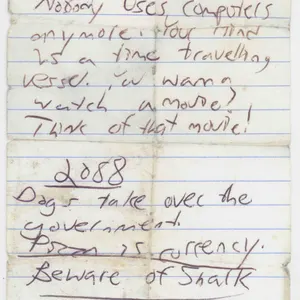 Nobody uses computers
anymore. Your Mind
is a time travelling
vessel. You wanna
watch a movie?
Think of that movie!
2088
Dogs take over the
government.
is currency.
Beware of Shalk